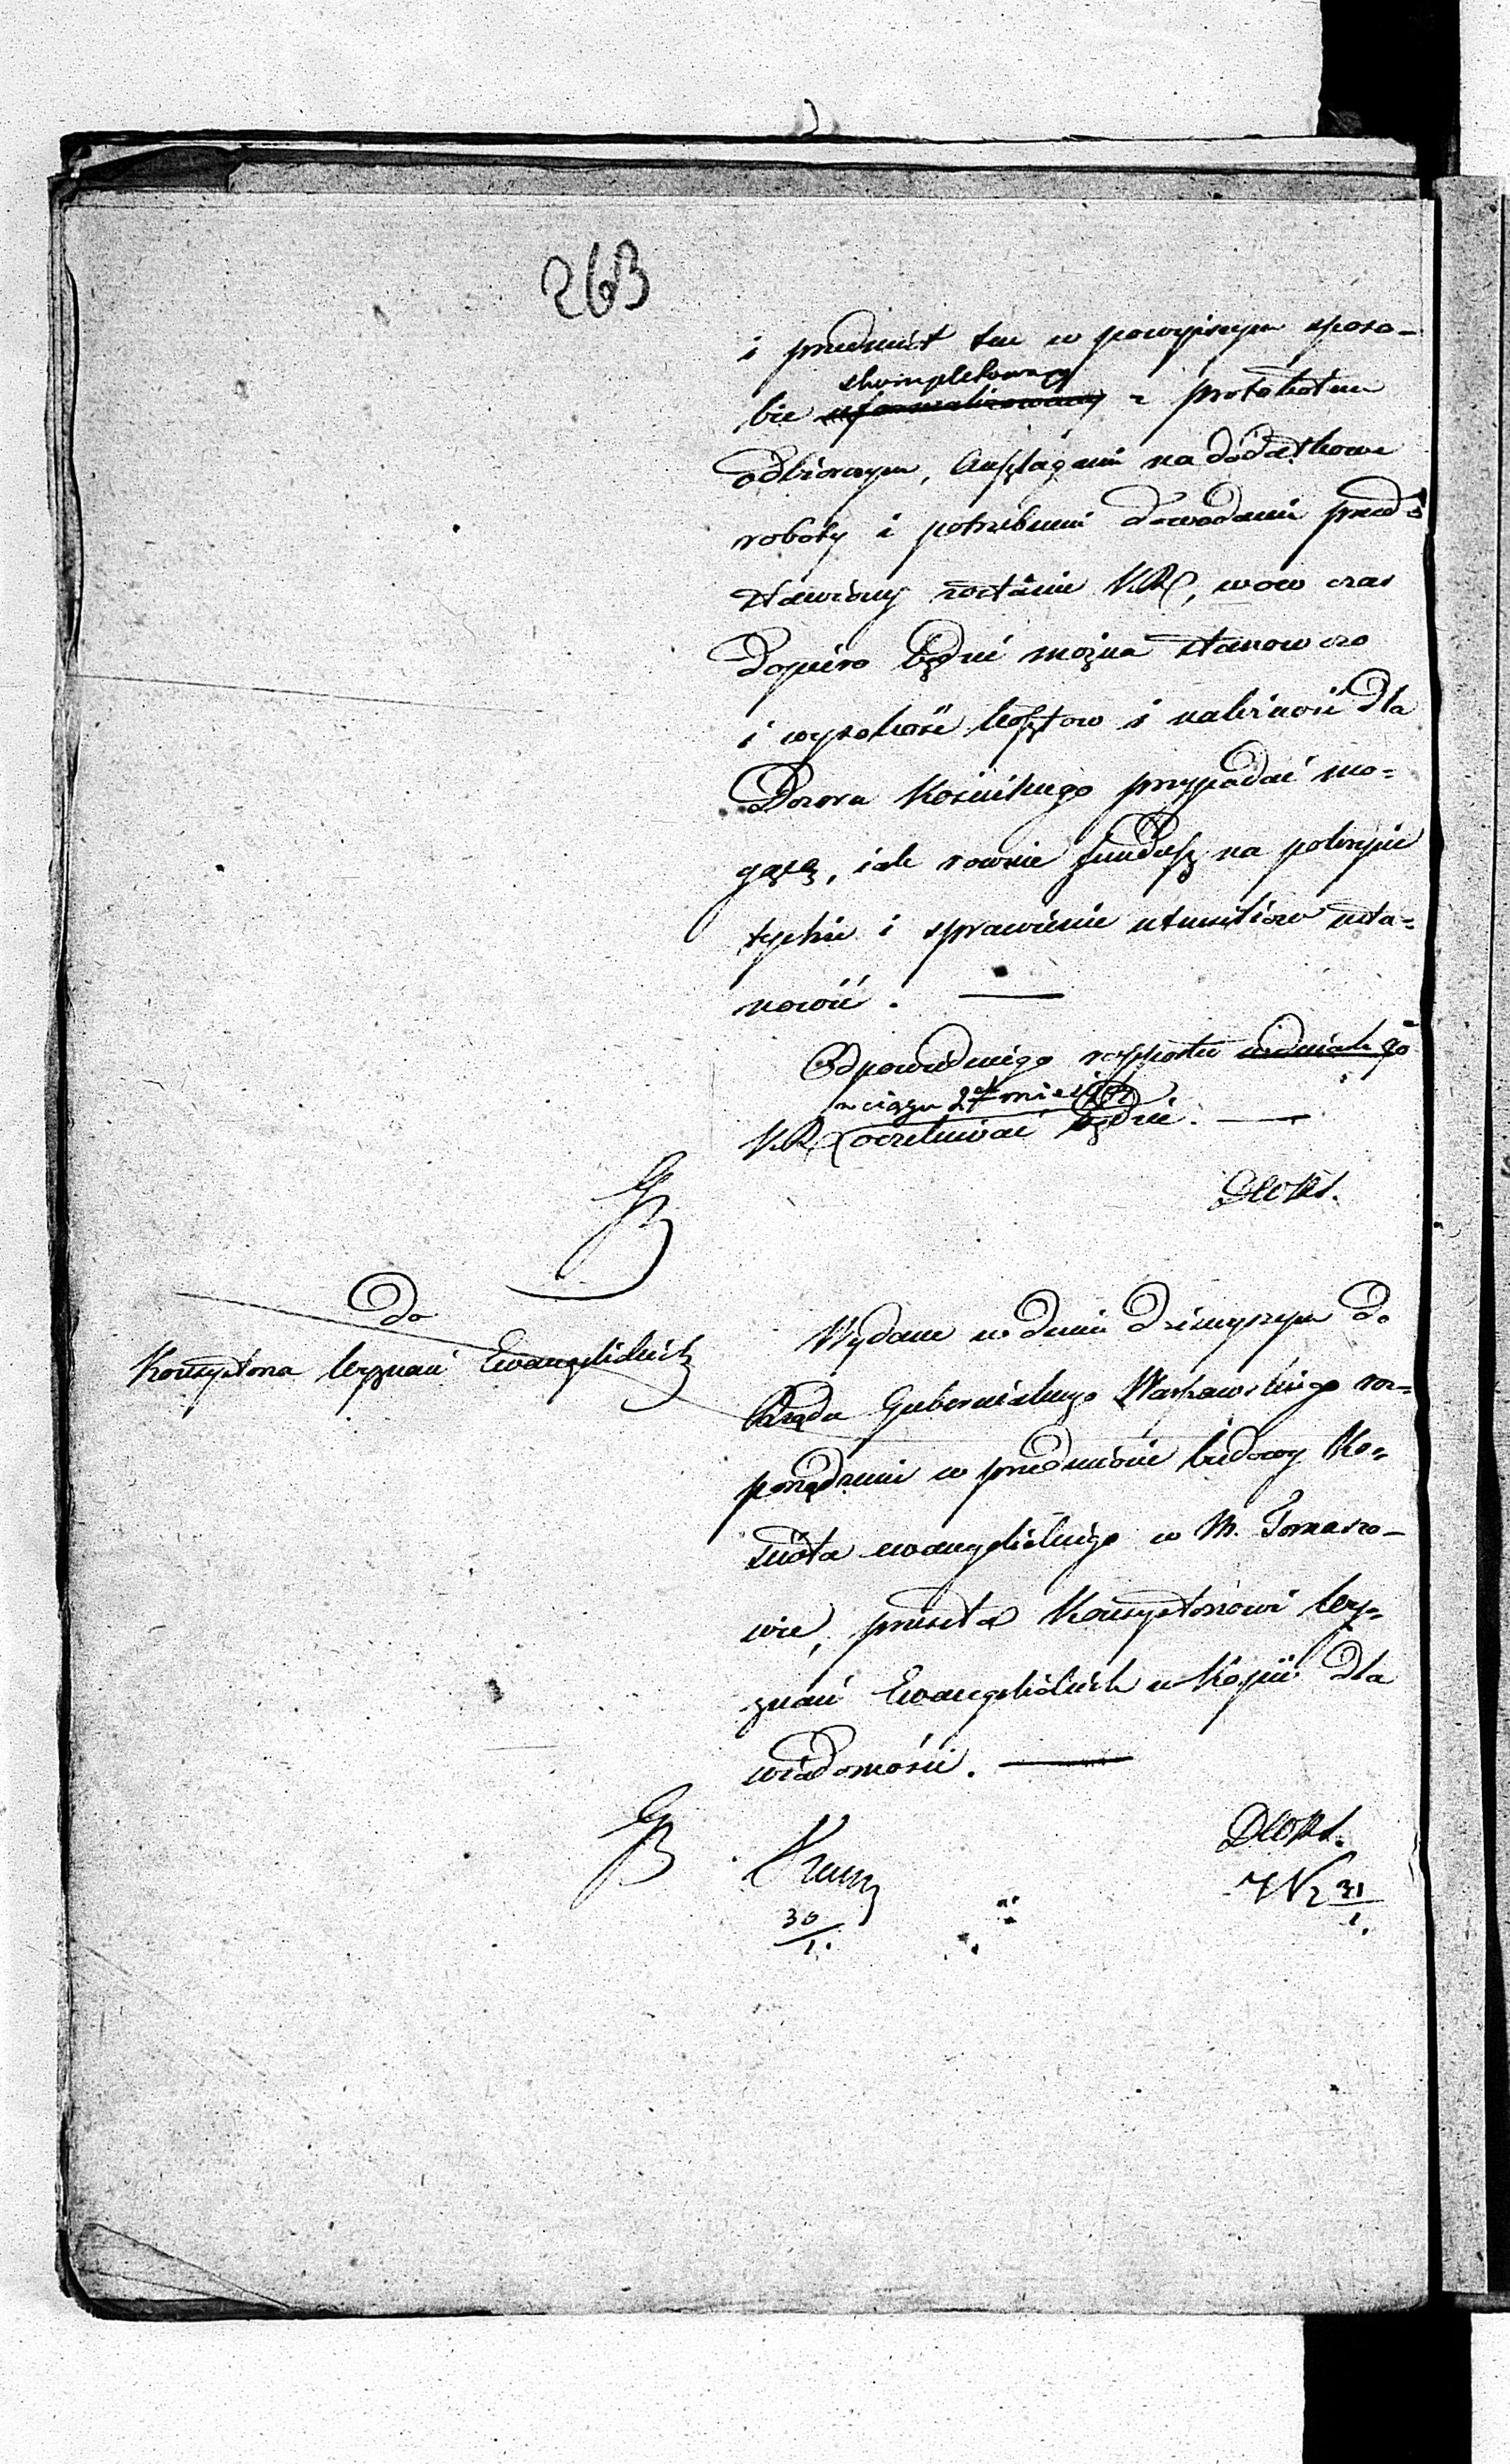 263
i przedmiot ten w powyższym sposo-
skompletowany
bie uformalizowany z protokołem
odbiorczym, Anszlagami na dodatkowe
roboty i potrzebnemi dowodami przed-
stawiony zostanie KR, wow czas
dopiero będzie można stanowczo
i wysokość kosztow i należność dla
Dozoru Kościelnego przypadać mo-
gącą, iak rownie fundusz na pokrycie
tychże i sprawienie utensiliów usta-
nowić. —
Odpowiedniego rapportu
w ciągu 2ch miesięcy
KR oczekiwać będzie. —
Do
Konsystorza Wyznań Ewangelickich
Wydane w dniu dzisiejszym do
Rządu Gubernialnego Warszawskiego roz-
porządzenie w przedmiocie budowy Ko-
ścioła ewangelickiego w M. Tomaszo-
wie, przesyła Konsystorzowi Wy-
znań Ewangelickich w Kopii dla
wiadomości. —
30/1.
31/1.